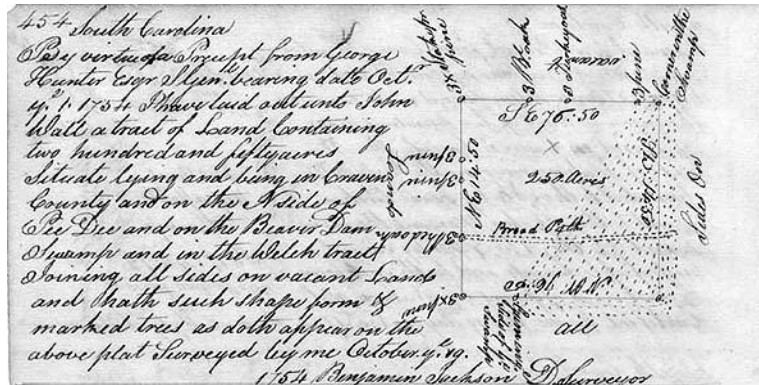 454 South Carolina
By virtue of a Precept from George
Hunter Esqr S.Gen.l bearing date Oct.r
y.e 1. 1754 I have laid out unto John
Wall a tract of Land Containing
two hundred and fifty acres
Situate lying and being in Craven
County and on the N side of
Pee Dee and on the Beaver Dam
Swamp and in the Welch tract
Joining all sides on vacant Land
and hath such shape form &
marked trees as doth appear on the
above plat Surveyed by me October y.e 19.
1754 Benjamin Jackson D Surveyor
3x Stake for pine
3 Black
vacant
3 pine
Corner in the Swamp
S E 76:50
3 pine
3 pine
Lands
N E 14:50
250 Acres
Sides On
Broad Path
3x pine
all